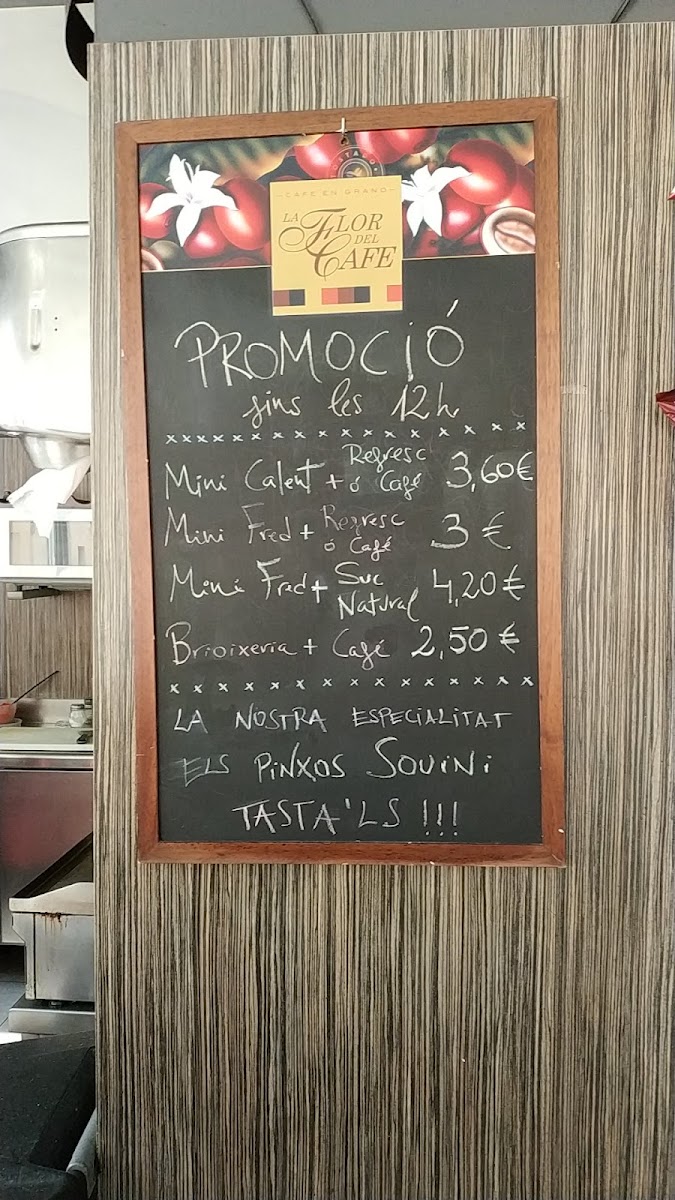 CAFÉ EN GRANO
LA FLOR
DEL
CAFE
PROMOCIÓ
fins les 12h
xxxxxxxxxxxxxxxx
Mini Calent + Refresc ó Café 3,60€
Mini Fred + Refresc ó Café 3€
Mini Fred + Suc Natural 4,20€
Brioixeria + Café 2,50€
xxxxxxxxxxxxxx
LA NOSTRA ESPECIALITAT
ELS PINXOS SOUINI
TASTA'LS !!!